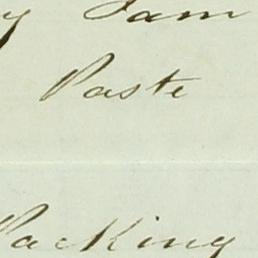 Jam
Paste
Packing